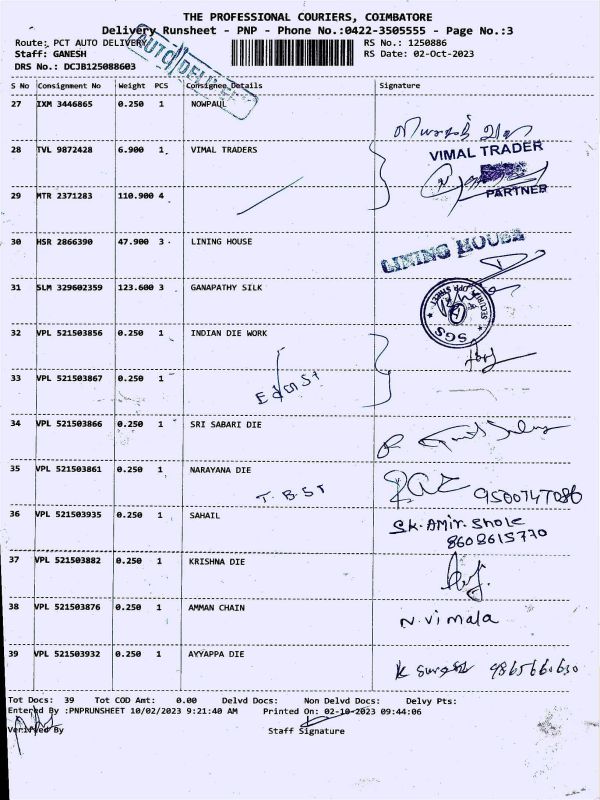 THE PROFESSIONAL COURIERS, COIMBATORE
Delivery Runsheet - PNP - Phone No.:0422-3505555 - Page No.:3
Route: PCT AUTO DELIVERY RS No.: 1250886
Staff: GANESH RS Date: 02-Oct-2023
DRS No.: DCJB125088603
AUTO DELIVERY
S No Consignment No Weight PCS Consignee Details Signature
27 IXM 3446865 0.250 1 NOWPAUL
28 TVL 9872428 6.900 1 VIMAL TRADERS
VIMAL TRADER
PARTNER
29 MTR 2371283 110.900 4
30 HSR 2866390 47.900 3 LINING HOUSE
LINING HOUSE
31 SLM 329602359 123.600 3 GANAPATHY SILK
SGS
SECURITY
STREET
32 VPL 521503856 0.250 1 INDIAN DIE WORK
33 VPL 521503867 0.250 1
34 VPL 521503866 0.250 1 SRI SABARI DIE
35 VPL 521503861 0.250 1 NARAYANA DIE
T. B. ST
9500747086
36 VPL 521503935 0.250 1 SAHAIL
SK. AMIR. Shole
8608615770
37 VPL 521503882 0.250 1 KRISHNA DIE
38 VPL 521503876 0.250 1 AMMAN CHAIN
N. Vimala
39 VPL 521503932 0.250 1 AYYAPPA DIE
K
Tot Docs: 39 Tot COD Amt: 0.00 Delvd Docs: Non Delvd Docs: Delvy Pts:
Entered By :PNPRUNSHEET 10/02/2023 9:21:40 AM Printed On: 02-10-2023 09:44:06
Verified By Staff Signature